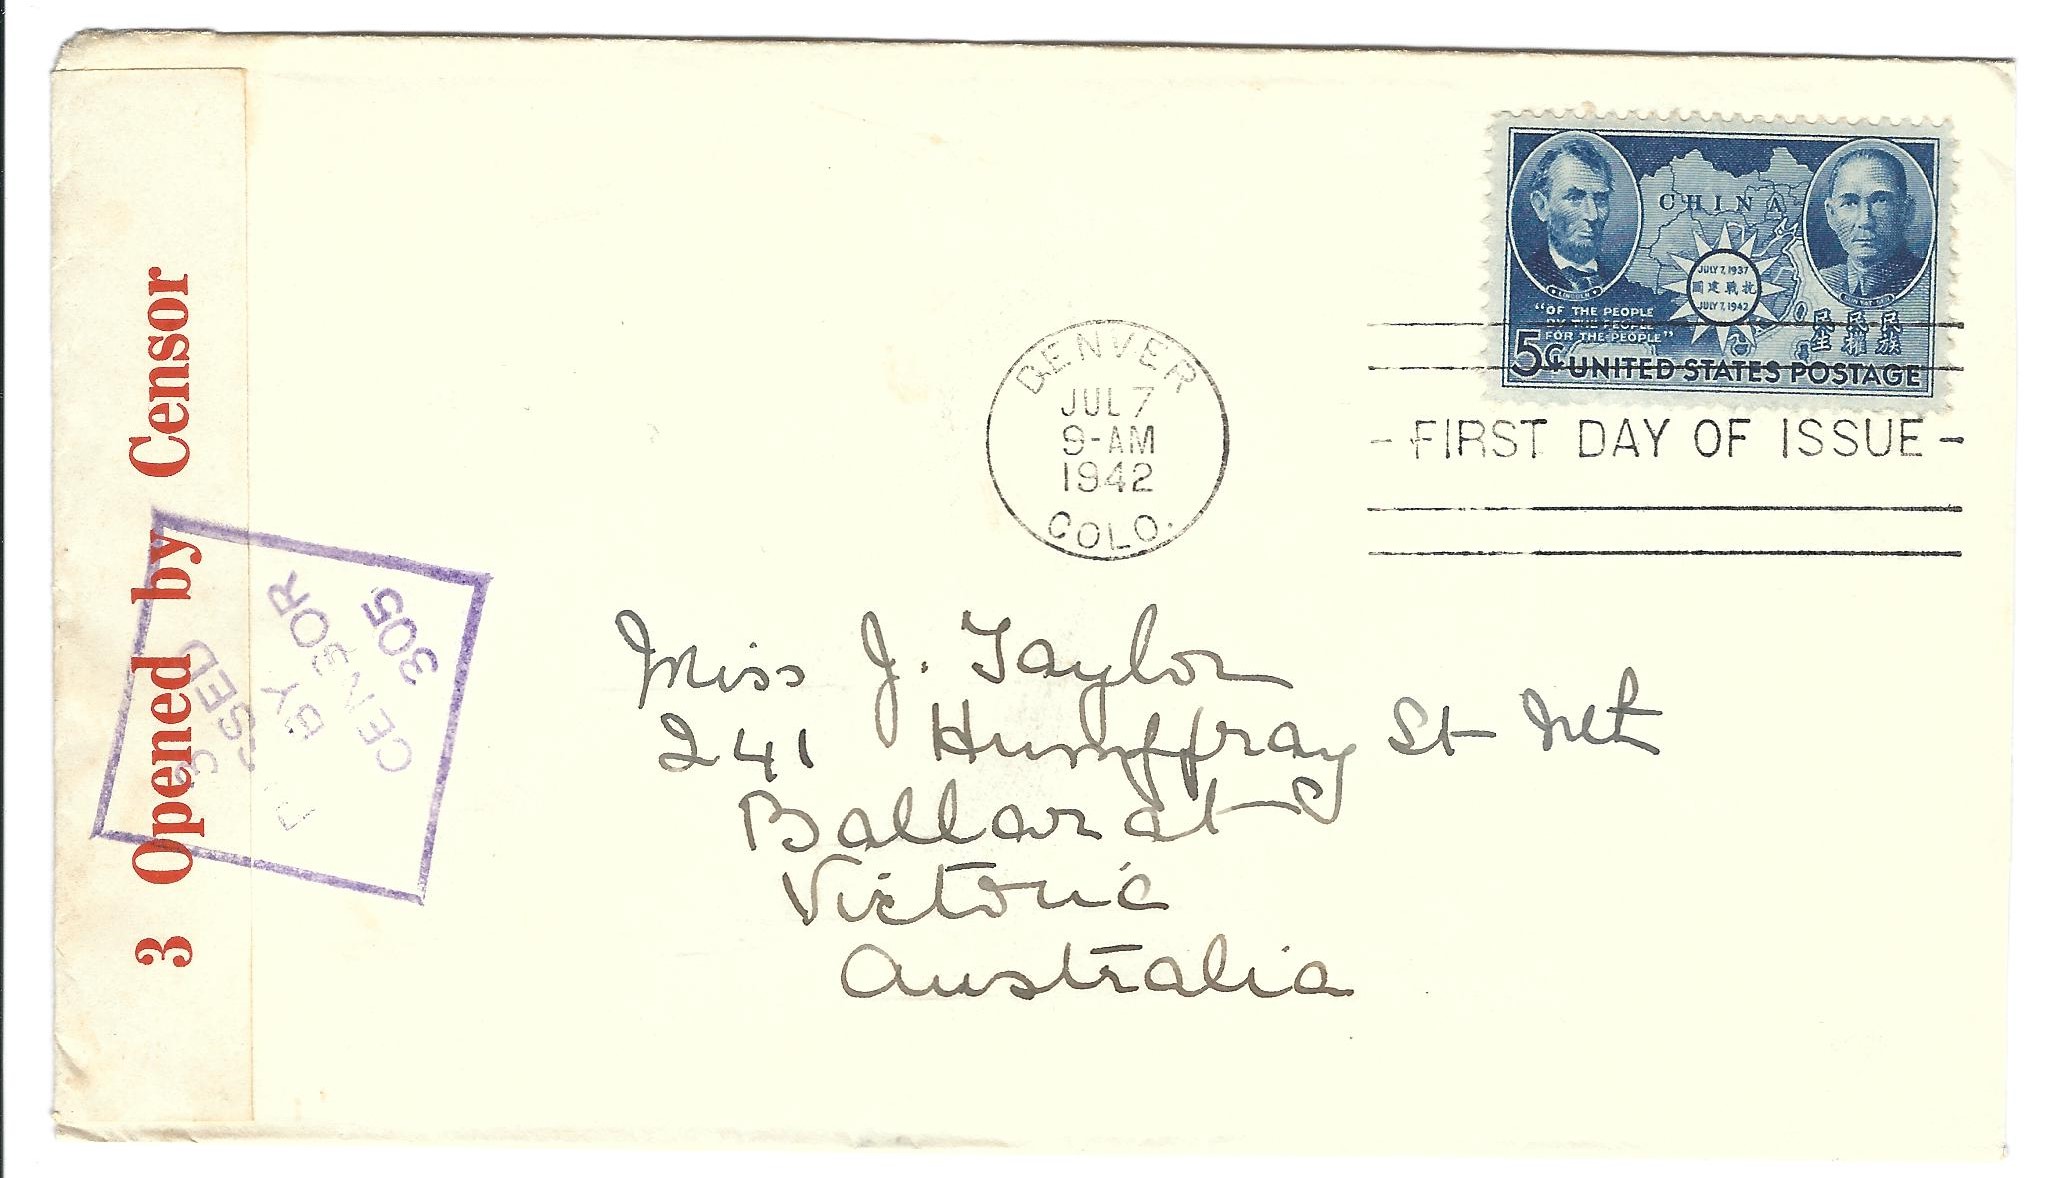 3 Opened by Censor
3
PASSED
BY
CENSOR
305
DENVER
JUL 7
9-AM
1942
COLO.
CHINA
JULY 7, 1937
國建戰抗
JULY 7, 1942
LINCOLN
SUN YAT-SEN
"OF THE PEOPLE
BY THE PEOPLE
FOR THE PEOPLE"
民族
民權
民生
5¢ UNITED STATES POSTAGE
- FIRST DAY OF ISSUE -
Miss J. Taylor
241 Humffray St Nth
Ballarat
Victoria
Australia